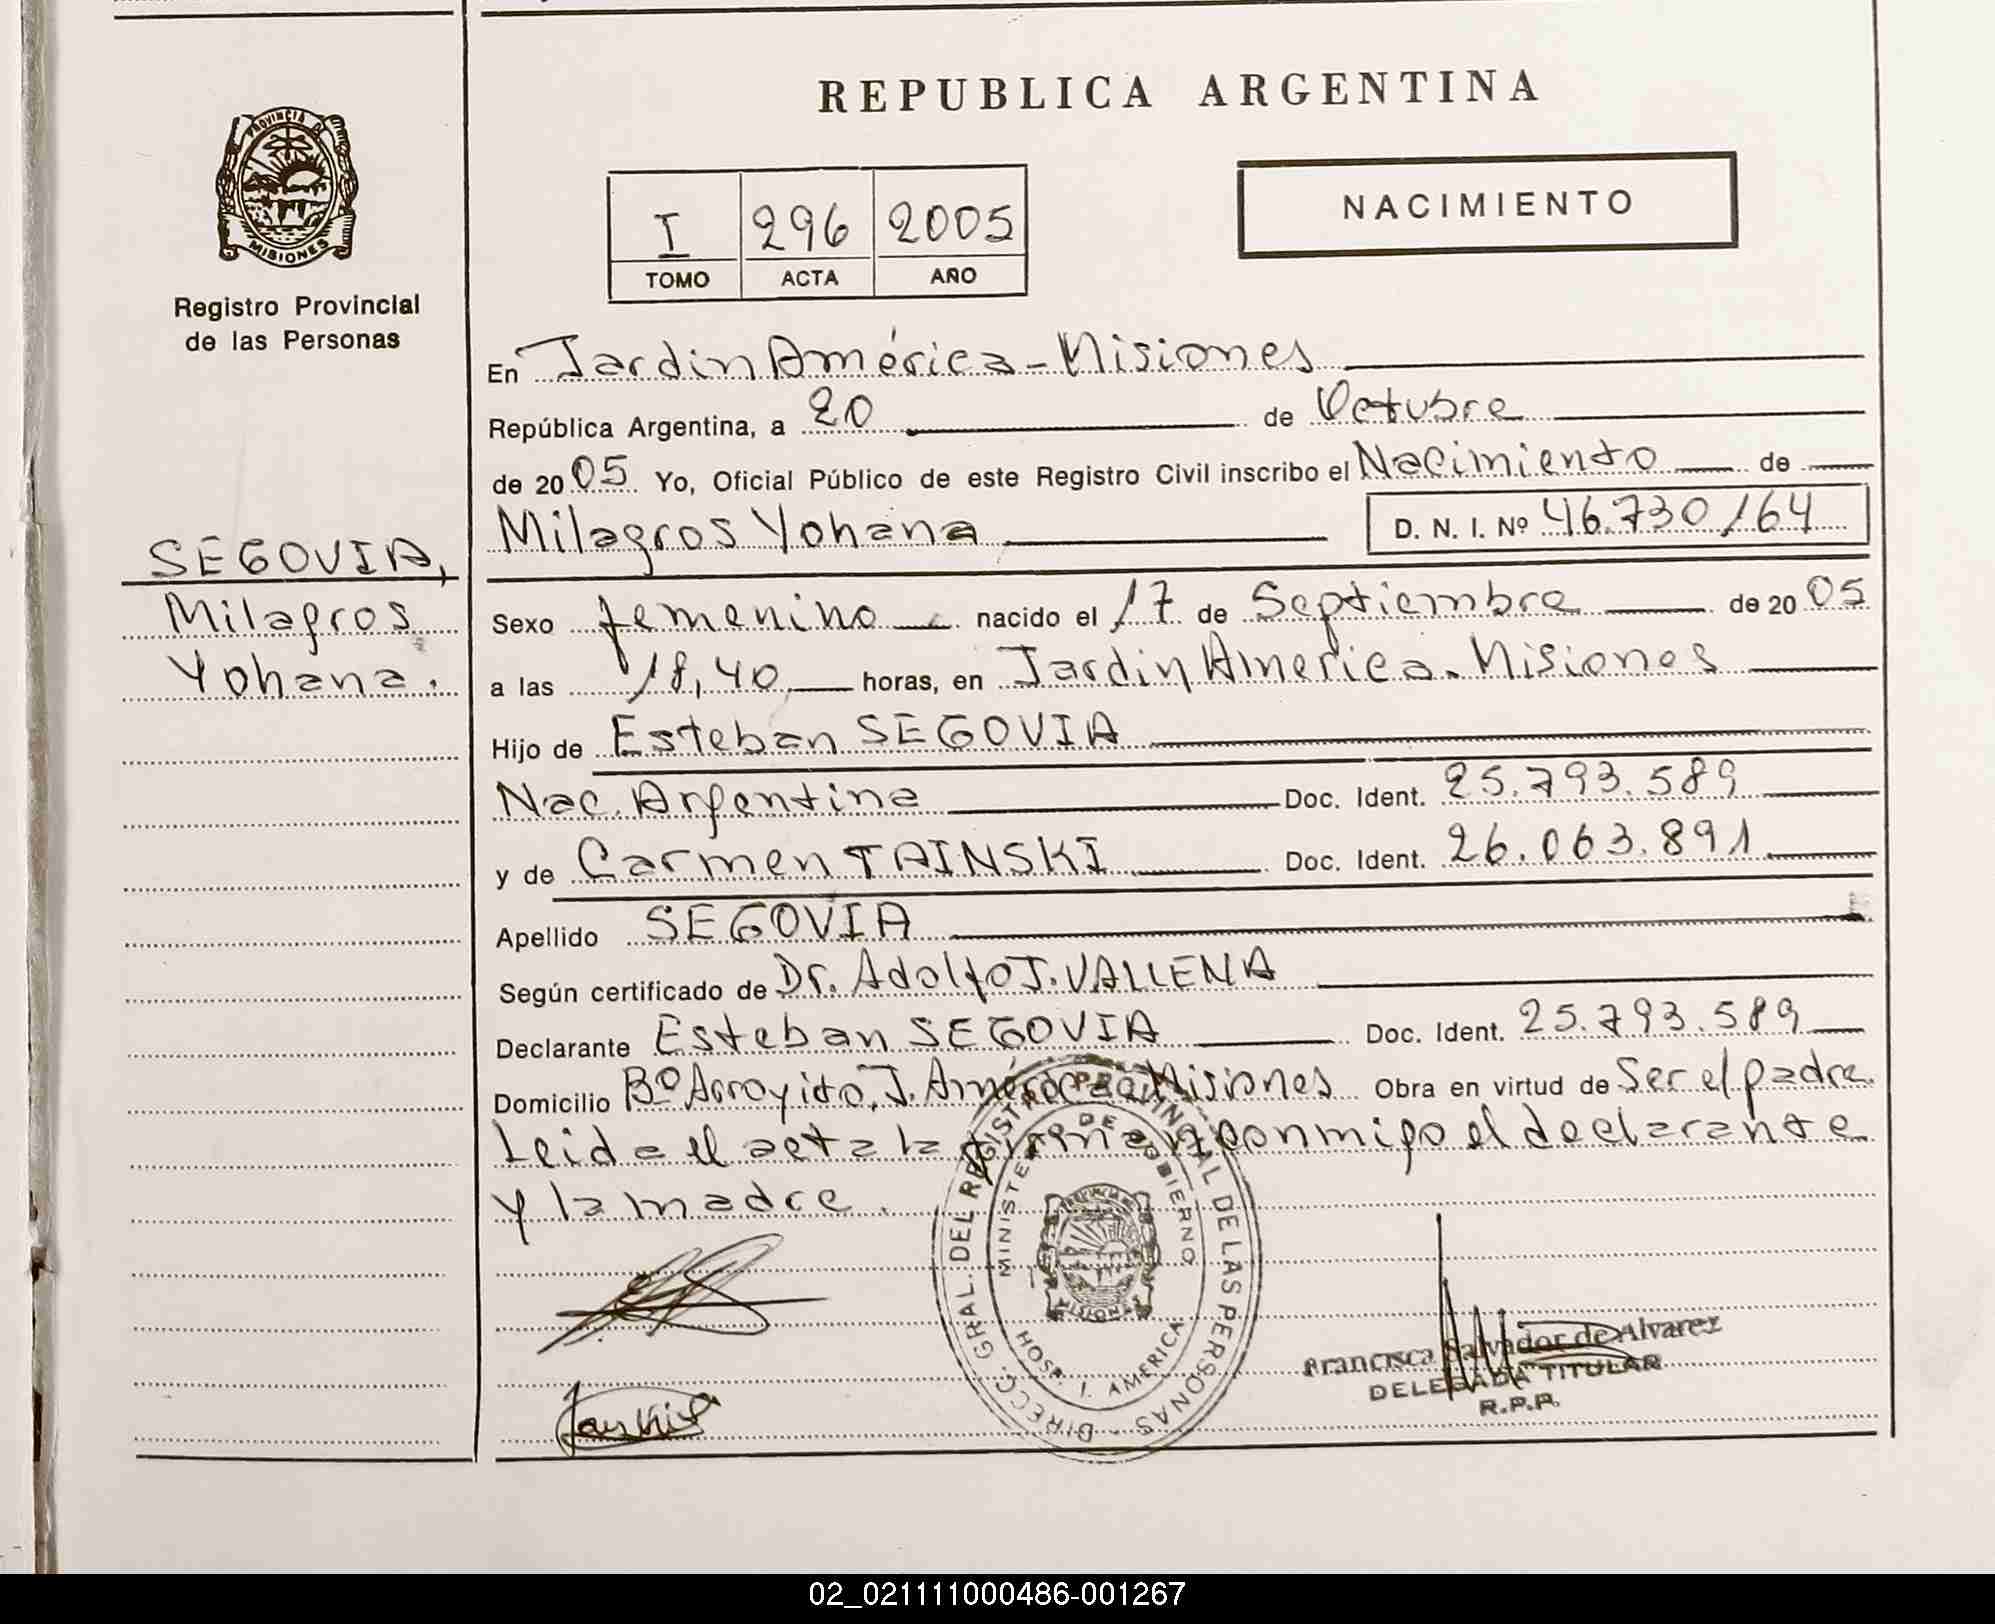 REPUBLICA ARGENTINA
PROVINCIA D
MISIONES
Registro Provincial
de las Personas
I 296 2005
TOMO ACTA AÑO
NACIMIENTO
En Jardin América - Misiones
República Argentina, a 20 de Octubre
de 2005 Yo, Oficial Público de este Registro Civil inscribo el Nacimiento de
Milagros Yohana D. N. I. Nº 46.730/64
SEGOVIA,
Milagros
Yohana.
Sexo femenino nacido el 17 de Septiembre de 2005
a las 18,40 horas, en Jardin America - Misiones
Hijo de Esteban SEGOVIA
Nac. Argentina Doc. Ident. 25.793.589
y de Carmen TAINSKI Doc. Ident. 26.063.891
Apellido SEGOVIA
Según certificado de Dr. Adolfo J. VALLENA
Declarante Esteban SEGOVIA Doc. Ident. 25.793.589
Domicilio Bº Arroyito, J. América Misiones Obra en virtud de Ser el padre.
Leida el acta la firman conmigo el declarante
y la madre.
DIRECC. GRAL. DEL REGISTRO PROVINCIAL DE LAS PERSONAS
MINISTERIO DE GOBIERNO
MISIONES
HOSP. J. AMERICA
Francisca Salvador de Alvarez
DELEGADA TITULAR
R.P.P.
02_021111000486-001267